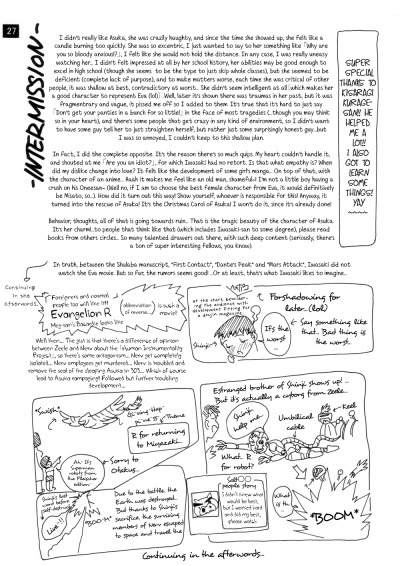 27
-INTERMISSION-
I didn't really like Asuka, she was crazily haughty, and since the time she showed up, she felt like a
candle burning too quickly. She was so excentric, I just wanted to say to her something like 「Why are
you so bloody anxious?」, I felt like she would not hold the distance. In any case, I was really uneasy
watching her. I didn't felt impressed at all by her school history, her abilities may be good enough to
excel in high school (though she seems to be the type to just skip whole classes), but she seemed to be
deficient (complete lack of purpose), and to make matters worse, each time she was critical of other
people, it was shallow at best, contradictory at worst... She didn't seem intelligent at all (which makes her
a good character to represent Eva (lol)). Well, later it's shown there was traumas in her past, but it was
fragmentary and vague, it pissed me off so I added to them. It's true that it's hard to just say
「Don't get your panties in a bunch for so little」 in the face of most tragedies (...though you may think
so in your heart), and there's some people that get crazy in any kind of environment, so I didn't want
to have some guy tell her to just straighten herself, but rather just some surprisingly honest guy...but
I was so annoyed, I couldn't keep to this shallow plan.
In fact, I did the complete opposite. It's the reason there's so much guys. My heart couldn't handle it,
and shouted at me 「Are you an idiot?」, for which Iwasaki had no retort. Is that what empathy is? When
did my dislike change into love? It felt like the development of some girls manga... On top of that, with
the character of an anime... Aaah it makes me feel like an old man, shameful! I'm not a little boy having a
crush on his Oneesan~ (Well no, if I am to choose the best female character from Eva, it would definitively
be Misato, so...). How did it turn out this way! Show yourself, whoever is responsible for this! Anyway, it
turned into the rescue of Asuka! It's the Christmas Carol of Asuka! I won't do it, since it's already done!
Behavior, thoughts, all of that is going towards ruin... That is the tragic beauty of the character of Asuka.
It's her charm!..to people that think like that (which includes Iwasaki-san to some degree), please read
books from others circles... So many talentued drawers out there, with such deep content (seriously, there's
a ton of super interesting fellows, you know).
SUPER
SPECIAL
THANKS TO
KISARAGI
KURAGE-
SAN! HE
HELPED
ME A
LOT!!
I ALSO
GOT TO
LEARN
SOME
THINGS!
YAY
~~~~
In truth, between the Shalaba manuscript, "First Contact", "Dante's Peak" and "Mars Attack", Iwasaki did not
watch the Eva movie. But so far, the rumors seems good! ..Or at least, that's what Iwasaki likes to imagine..
Continuing
in the
afterwords..
Foreigners and normal
people too will like it!!
Evangelion R
Megi-san's Evangelion looks like
abbreviation
of reverse...?
Is such a
movie!?
Forshadowing for
later..(lol)
Shinji
It's the
worst
Say something like
that.. Bad thing is
the worst..
Well then... The gist is that there's a difference of opinion
between Zeele and Nerv about the 「Human Instrumentality
Project」, so there's some antagonism... Nerv get completely
isolated... Nerv employees get murdered... Nerv is troubled and
remove the seal of the sleeping Asuka in 303... Which of course
lead to Asuka rampaging! Followed but further troubling
development...
*Swish*
R for returning
to Miyazaki..
Sorry to
Otakus..
Shinji's last
word before
self-destruct
Live!!
*BOO-M*
Due to the battle, the
Earth was destroyed..
But thanks to Shinji's
sacrifice, the surviving
members of Nerv escaped
to space and travel the
Estranged brother of Shinji shows up!..
But it's actually a cyborg from Zeele..
Shinji
help me..
Umbilical
cable
Keel
What. R
for robot?
I didn't knew what
would be best,
but I worried hard
and did my best,
please watch
What is
th..
*BOOM*
Continuing in the afterwords..